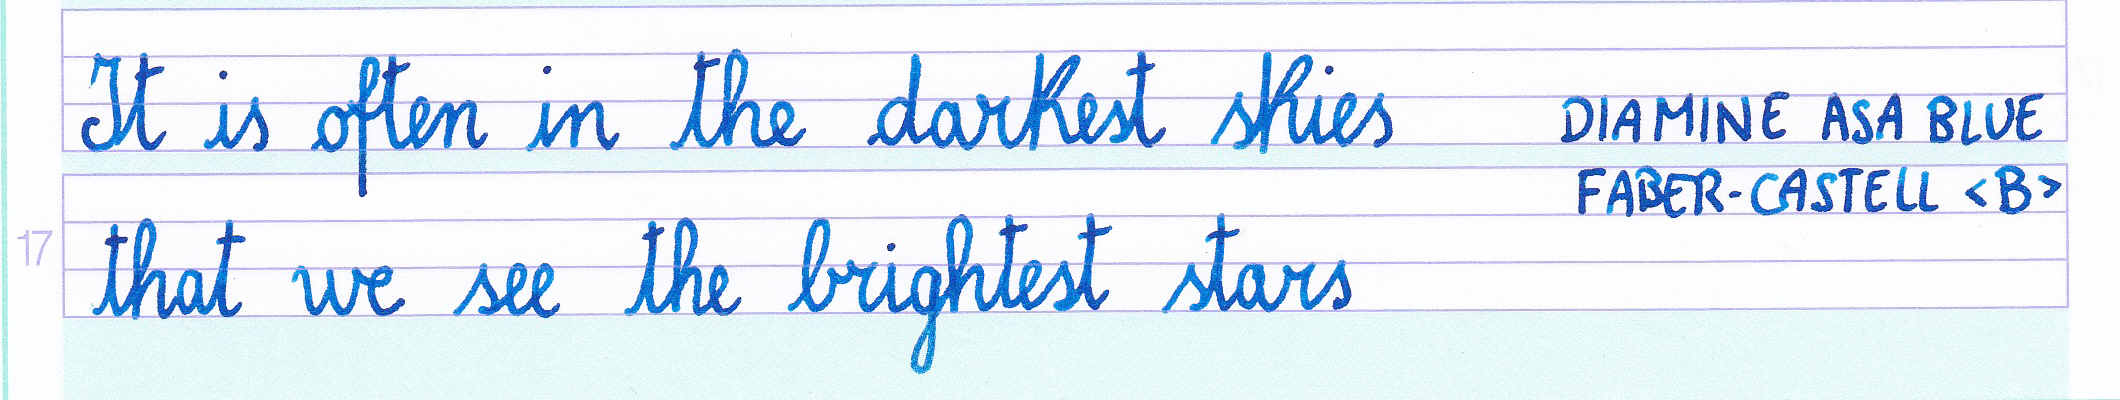 It is often in the darkest skies
DIAMINE ASA BLUE
FABER-CASTELL <B>
17
that we see the brightest stars